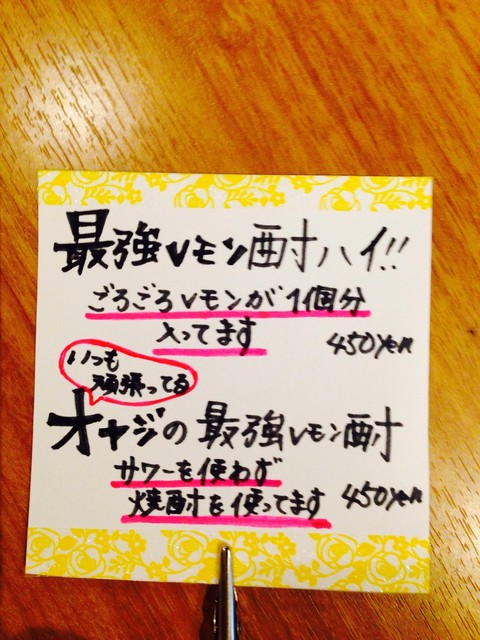 最強レモン酎ハイ!!
ごろごろレモンが1個分
入ってます
450yen
いつも
頑張ってる
オヤジの最強レモン酎
サワーを使わず
焼酎を使ってます
450yen